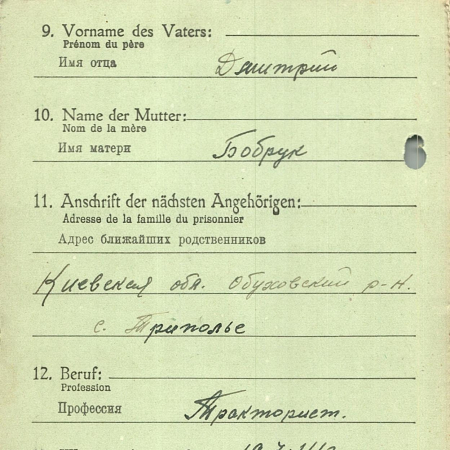 9. Vorname des Vaters:
Prénom du père
Имя отца Дмитрий
10. Name der Mutter:
Nom de la mère
Имя матери Бобрук
11. Anschrift der nächsten Angehörigen:
Adresse de la famille du prisonnier
Адрес ближайших родственников
Киевская обл. Обуховский р-н.
с. Триполье
12. Beruf:
Profession
Профессия Тракторист.